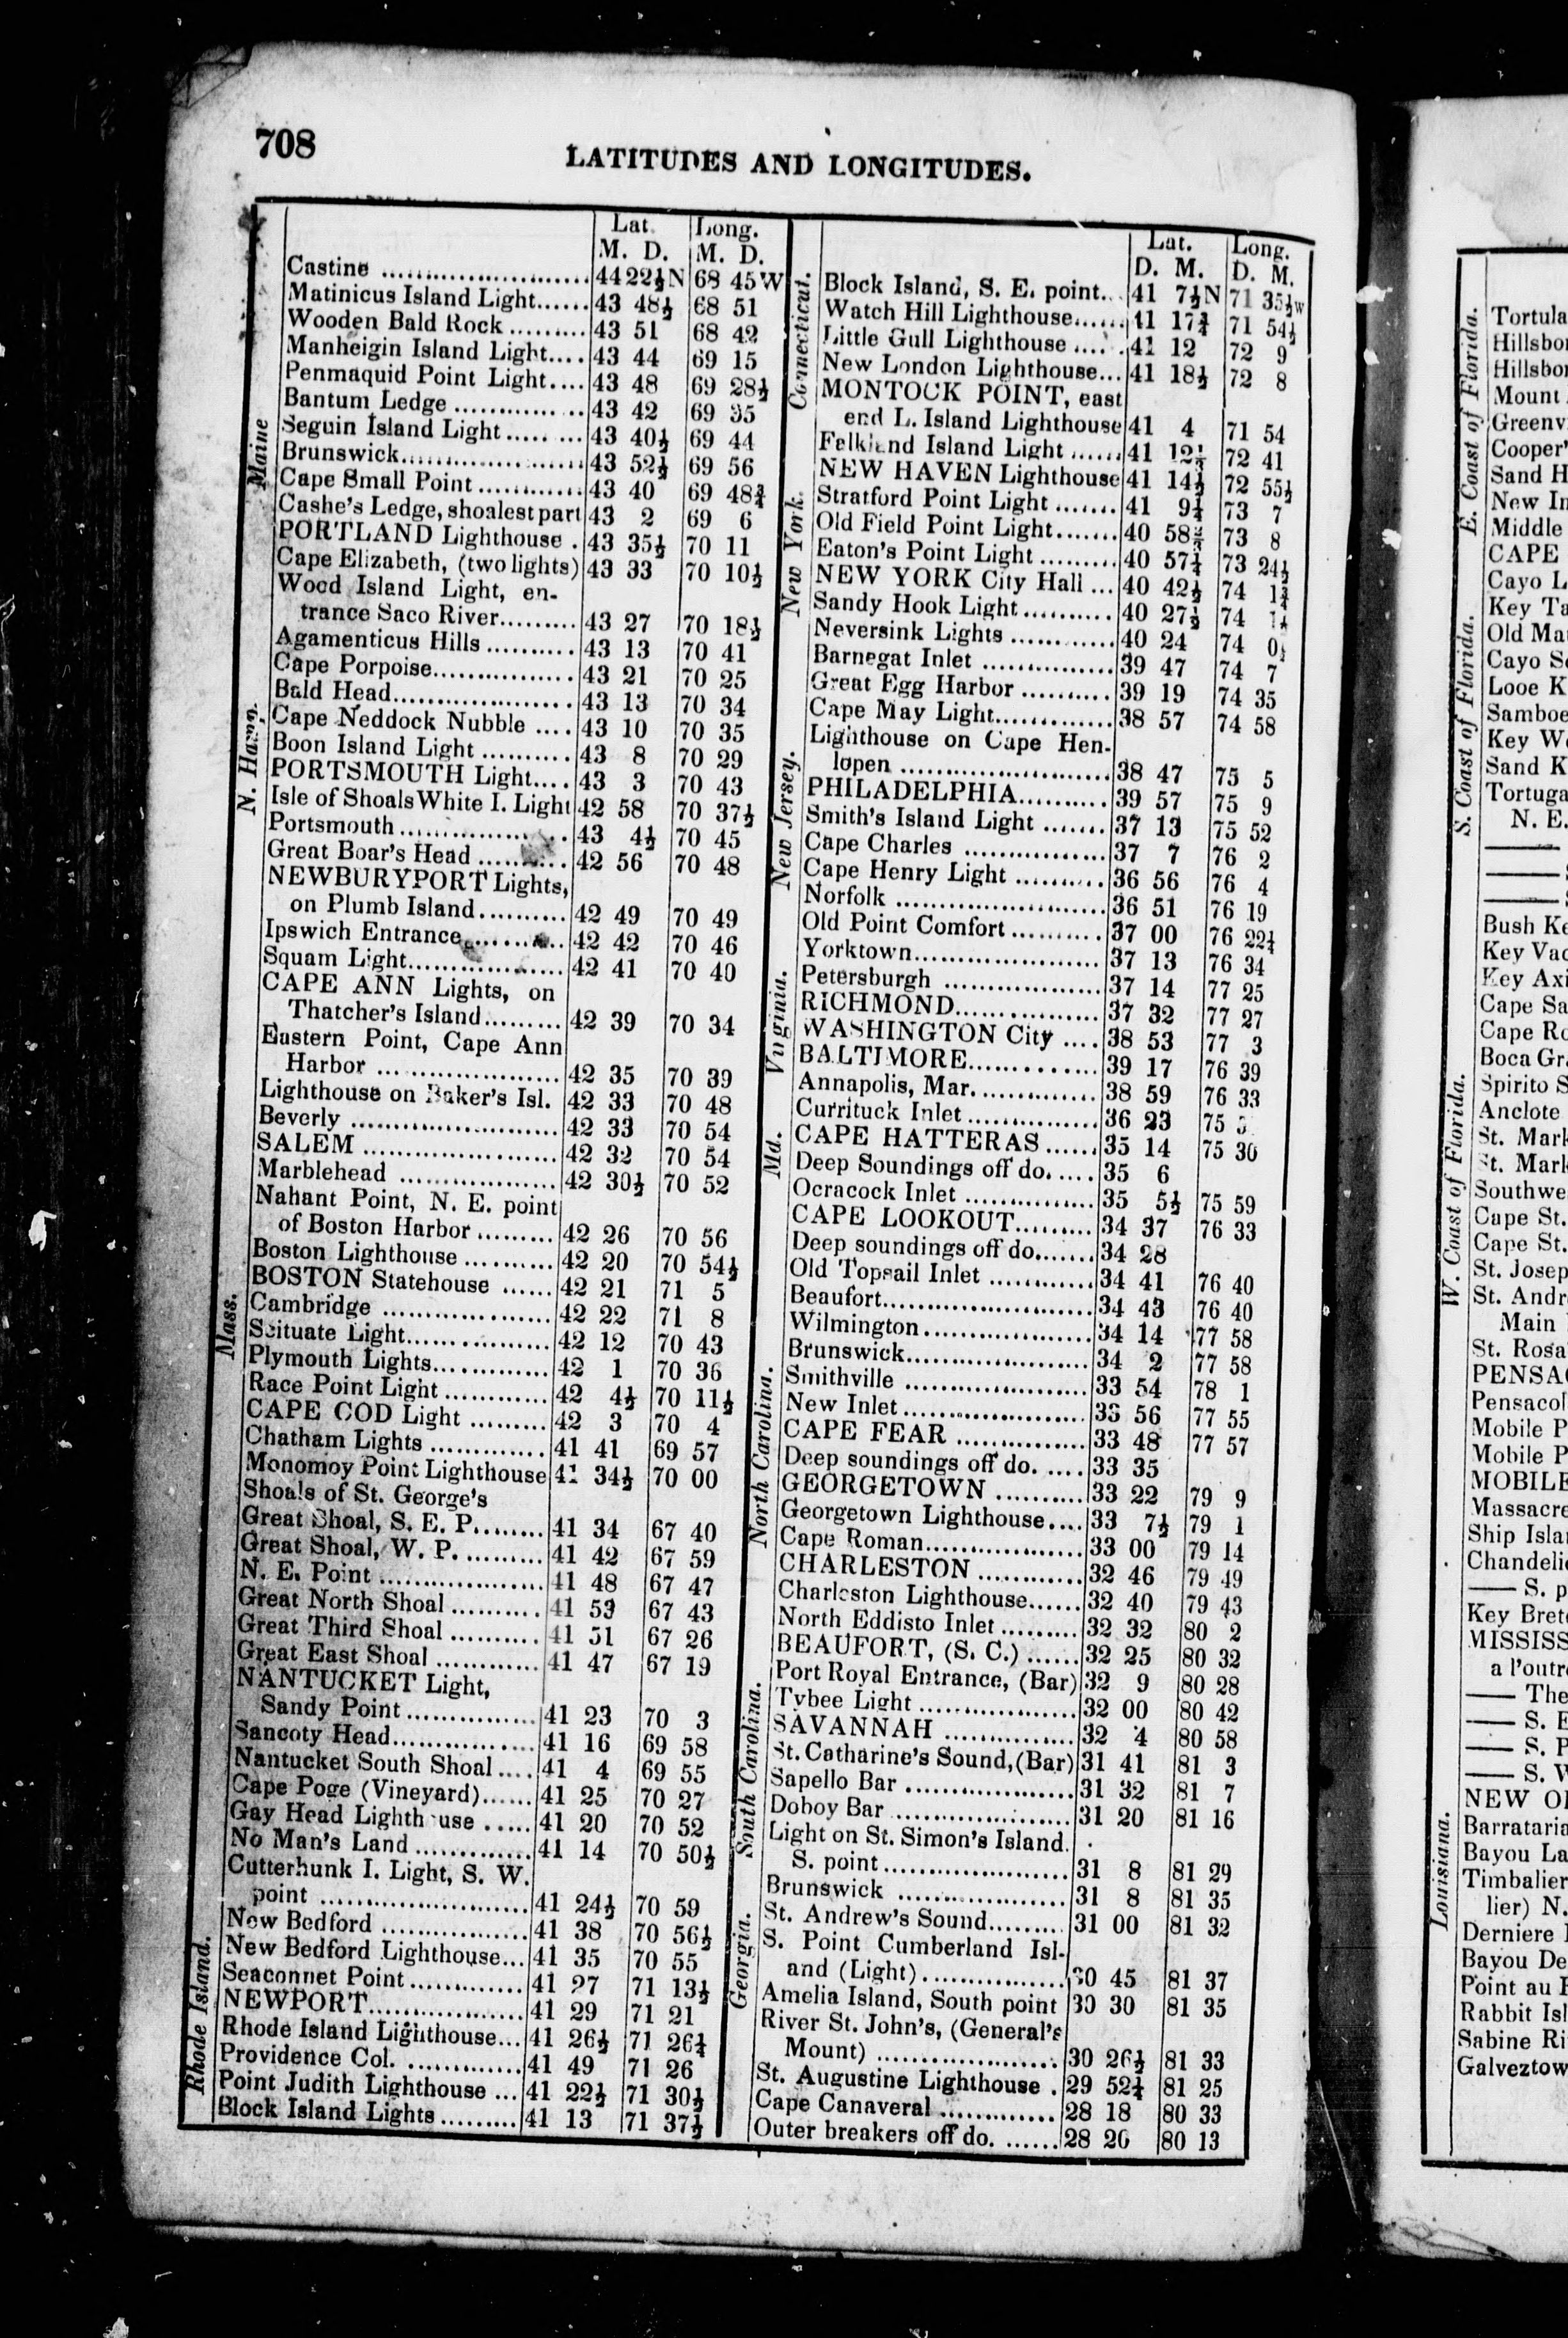 708
LATITUDES AND LONGITUDES.
Lat. Long.
M. D. M. D.
Maine
Castine 44 22½ N 68 45 W
Matinicus Island Light 43 48½ 68 51
Wooden Bald Rock 43 51 68 42
Manheigin Island Light 43 44 69 15
Penmaquid Point Light 43 48 69 28½
Bantum Ledge 43 42 69 35
Seguin Island Light 43 40½ 69 44
Brunswick 43 52½ 69 56
Cape Small Point 43 40 69 48¾
Cashe's Ledge, shoalest part 43 2 69 6
PORTLAND Lighthouse 43 35½ 70 11
Cape Elizabeth, (two lights) 43 33 70 10½
Wood Island Light, en-
trance Saco River 43 27 70 18½
Agamenticus Hills 43 13 70 41
Cape Porpoise 43 21 70 25
Bald Head 43 13 70 34
N. Hamp.
Cape Neddock Nubble 43 10 70 35
Boon Island Light 43 8 70 29
PORTSMOUTH Light 43 3 70 43
Isle of Shoals White I. Light 42 58 70 37½
Portsmouth 43 4½ 70 45
Great Boar's Head 42 56 70 48
NEWBURYPORT Lights,
on Plumb Island 42 49 70 49
Ipswich Entrance 42 42 70 46
Squam Light 42 41 70 40
CAPE ANN Lights, on
Thatcher's Island 42 39 70 34
Eastern Point, Cape Ann
Harbor 42 35 70 39
Lighthouse on Baker's Isl. 42 33 70 48
Beverly 42 33 70 54
SALEM 42 32 70 54
Marblehead 42 30½ 70 52
Nahant Point, N. E. point
of Boston Harbor 42 26 70 56
Boston Lighthouse 42 20 70 54½
BOSTON Statehouse 42 21 71 5
Mass.
Cambridge 42 22 71 8
Scituate Light 42 12 70 43
Plymouth Lights 42 1 70 36
Race Point Light 42 4½ 70 11½
CAPE COD Light 42 3 70 4
Chatham Lights 41 41 69 57
Monomoy Point Lighthouse 41 34½ 70 00
Shoals of St. George's
Great Shoal, S. E. P. 41 34 67 40
Great Shoal, W. P. 41 42 67 59
N. E. Point 41 48 67 47
Great North Shoal 41 53 67 43
Great Third Shoal 41 51 67 26
Great East Shoal 41 47 67 19
NANTUCKET Light,
Sandy Point 41 23 70 3
Sancoty Head 41 16 69 58
Nantucket South Shoal 41 4 69 55
Cape Poge (Vineyard) 41 25 70 27
Gay Head Lighthouse 41 20 70 52
No Man's Land 41 14 70 50½
Cutterhunk I. Light, S. W.
point 41 24½ 70 59
New Bedford 41 38 70 56½
New Bedford Lighthouse 41 35 70 55
Rhode Island.
Seaconnet Point 41 27 71 13½
NEWPORT 41 29 71 21
Rhode Island Lighthouse 41 26½ 71 26¼
Providence Col. 41 49 71 26
Point Judith Lighthouse 41 22½ 71 30½
Block Island Lights 41 13 71 37½
Lat. Long.
D. M. D. M.
Connecticut.
Block Island, S. E. point 41 7½ N 71 35½ W
Watch Hill Lighthouse 41 17¾ 71 54½
Little Gull Lighthouse 41 12 72 9
New London Lighthouse 41 18½ 72 8
MONTOCK POINT, east
end L. Island Lighthouse 41 4 71 54
Falkland Island Light 41 12 72 41
NEW HAVEN Lighthouse 41 14½ 72 55½
New York.
Stratford Point Light 41 9¼ 73 7
Old Field Point Light 40 58 73 8
Eaton's Point Light 40 57¼ 73 24½
NEW YORK City Hall 40 42½ 74 1¾
Sandy Hook Light 40 27½ 74 1¼
Neversink Lights 40 24 74 0½
Barnegat Inlet 39 47 74 7
Great Egg Harbor 39 19 74 35
Cape May Light 38 57 74 58
New Jersey.
Lighthouse on Cape Hen-
lopen 38 47 75 5
PHILADELPHIA 39 57 75 9
Smith's Island Light 37 13 75 52
Cape Charles 37 7 76 2
Cape Henry Light 36 56 76 4
Norfolk 36 51 76 19
Old Point Comfort 37 00 76 22¼
Virginia.
Yorktown 37 13 76 34
Petersburgh 37 14 77 25
RICHMOND 37 32 77 27
WASHINGTON City 38 53 77 3
BALTIMORE 39 17 76 39
Md.
Annapolis, Mar. 38 59 76 33
Currituck Inlet 36 23 75
CAPE HATTERAS 35 14 75 30
Deep Soundings off do. 35 6
Ocracock Inlet 35 5½ 75 59
CAPE LOOKOUT 34 37 76 33
Deep soundings off do. 34 28
Old Topsail Inlet 34 41 76 40
Beaufort 34 43 76 40
Wilmington 34 14 77 58
North Carolina.
Brunswick 34 2 77 58
Smithville 33 54 78 1
New Inlet 33 56 77 55
CAPE FEAR 33 48 77 57
Deep soundings off do. 33 35
GEORGETOWN 33 22 79 9
Georgetown Lighthouse 33 7½ 79 1
Cape Roman 33 00 79 14
CHARLESTON 32 46 79 49
Charleston Lighthouse 32 40 79 43
North Eddisto Inlet 32 32 80 2
BEAUFORT, (S. C.) 32 25 80 32
South Carolina.
Port Royal Entrance, (Bar) 32 9 80 28
Tybee Light 32 00 80 42
SAVANNAH 32 4 80 58
St. Catharine's Sound, (Bar) 31 41 81 3
Sapello Bar 31 32 81 7
Doboy Bar 31 20 81 16
Light on St. Simon's Island.
S. point 31 8 81 29
Brunswick 31 8 81 35
Georgia.
St. Andrew's Sound 31 00 81 32
S. Point Cumberland Isl-
and (Light) 30 45 81 37
Amelia Island, South point 30 30 81 35
River St. John's, (General's
Mount) 30 26½ 81 33
St. Augustine Lighthouse 29 52¼ 81 25
Cape Canaveral 28 18 80 33
Outer breakers off do. 28 20 80 13
E. Coast of Florida.
Tortula
Hillsbor
Hillsbor
Mount
Greenv
Cooper'
Sand H
New In
Middle
CAPE
S. Coast of Florida.
Cayo L
Key Ta
Old Mat
Cayo So
Looe K
Samboe
Key We
Sand K
Tortuga
N. E.
Bush Ke
Key Vac
Key Axi
Cape Sa
Cape Ro
Boca Gra
W. Coast of Florida.
Spirito S
Anclote
St. Mark
St. Mark
Southwe
Cape St.
Cape St.
St. Josep
St. Andr
Main
St. Rosa
PENSAC
Pensacol
Mobile P
Mobile P
MOBILE
Massacre
Ship Isla
Chandelie
— S. p
Key Bret
MISSISS
a l'outr
— The
— S. E
— S. P
— S. W
Louisiana.
NEW OR
Barrataria
Bayou La
Timbalier
lier) N.
Derniere I
Bayou De
Point au F
Rabbit Isl
Sabine Ri
Galveztow